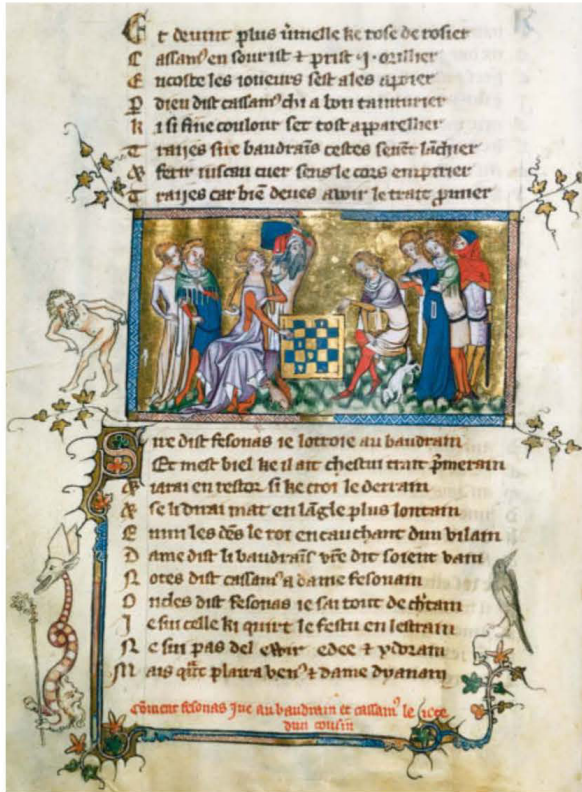 Et devint plus vmelle ke rose de rosier
Cassam9 en sourist ⁊ prist .j. orillier
Encoste les ioueurs sest ales apoier
P dieu dist cassam9 chi a bon tainturier
ki si fine coulour set tost apparellier
Traijes sire baudrains cestes sevent
ferir cuer sens le cors empirier
Traijes car biē deues avoir le trait pmier
Sire dist fesonas ie lottroie au baudrain
Et mest biel ke il ait chestui trait pmerain
iarai en testor si ke croi le derrain
se li dirai mat en lāgle plus lontain
Enmi les le roi en cauchant dun vilain
Dame dist li baudrais vre dit soient vain
Notes dist cassam9 a dame fesonain
Oncles dist fesonas ie sai tout de
Je sui celle ki quirt le festu en lestrain
Ne sui pas del edee ⁊ ydorain
Mais plaira ven9 ⁊ dame dyanain
Cōment fesonas jue au baudrain et cassam9 le
dun cousin